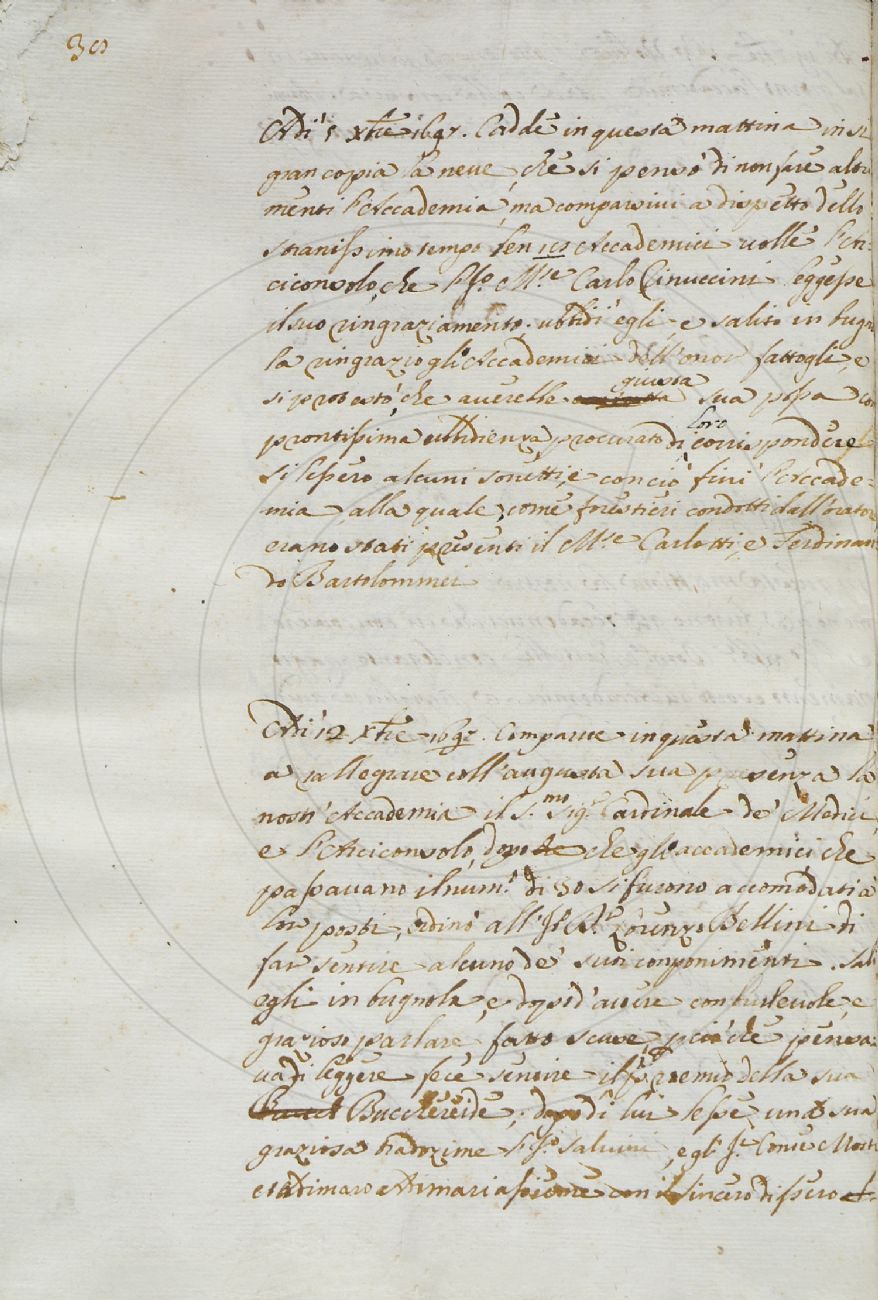 30
Adi 5 Xbre 1697. Cadde in questa mattina in sì
gran copia la neve, che si pensò di non fare altri
menti l'Accademia, ma comparsivi a dispetto dello
stranissimo tempo ben 19 Accademici volle l'Ar-
ciconsolo, che il Sr. Mse Carlo Rinuccini leggesse
il suo ringraziamento; ubbidì egli e salito in bugno
la ringraziò gli Accademici dell'onor fattogli, e
si protestò, che averebbe giusta sua possa con
prontissima ubbidienza procurato di loro corrispondere
si lessero alcuni sonetti, e con ciò finì l'Accade=
mia, alla quale, come forestieri condotti dall'orator
erano stati presenti il Mse Carlotti, e Ferdinan
do Bartolommei
Adi 12 Xbre 1697. Comparve in questa mattina
a rallegrare coll'augusta sua presenza la
nostr'Accademia il S.mo Sigr Cardinale de' Medici,
e l'Arciconsolo, dopo che gli accademici, che
passavano il num.o di 50 si furono accomodati a
lor posti, ordinò all' Sr. Dr. Lorenzo Bellini di
far sentire alcuno de' suoi componimenti. Salì
egli in bugnola, e dopo d'avere con burlevole, e
grazioso parlare fatto scuse per ciò che pensa=
va di leggere fece sentire il proemio della sua
Bucchereide; dopo di lui lesse una sua
graziosa frottola il Sr. Salvini, e gl' Sr. Conte Mosti
et Adimaro Animari assieme con il Sincero dissero